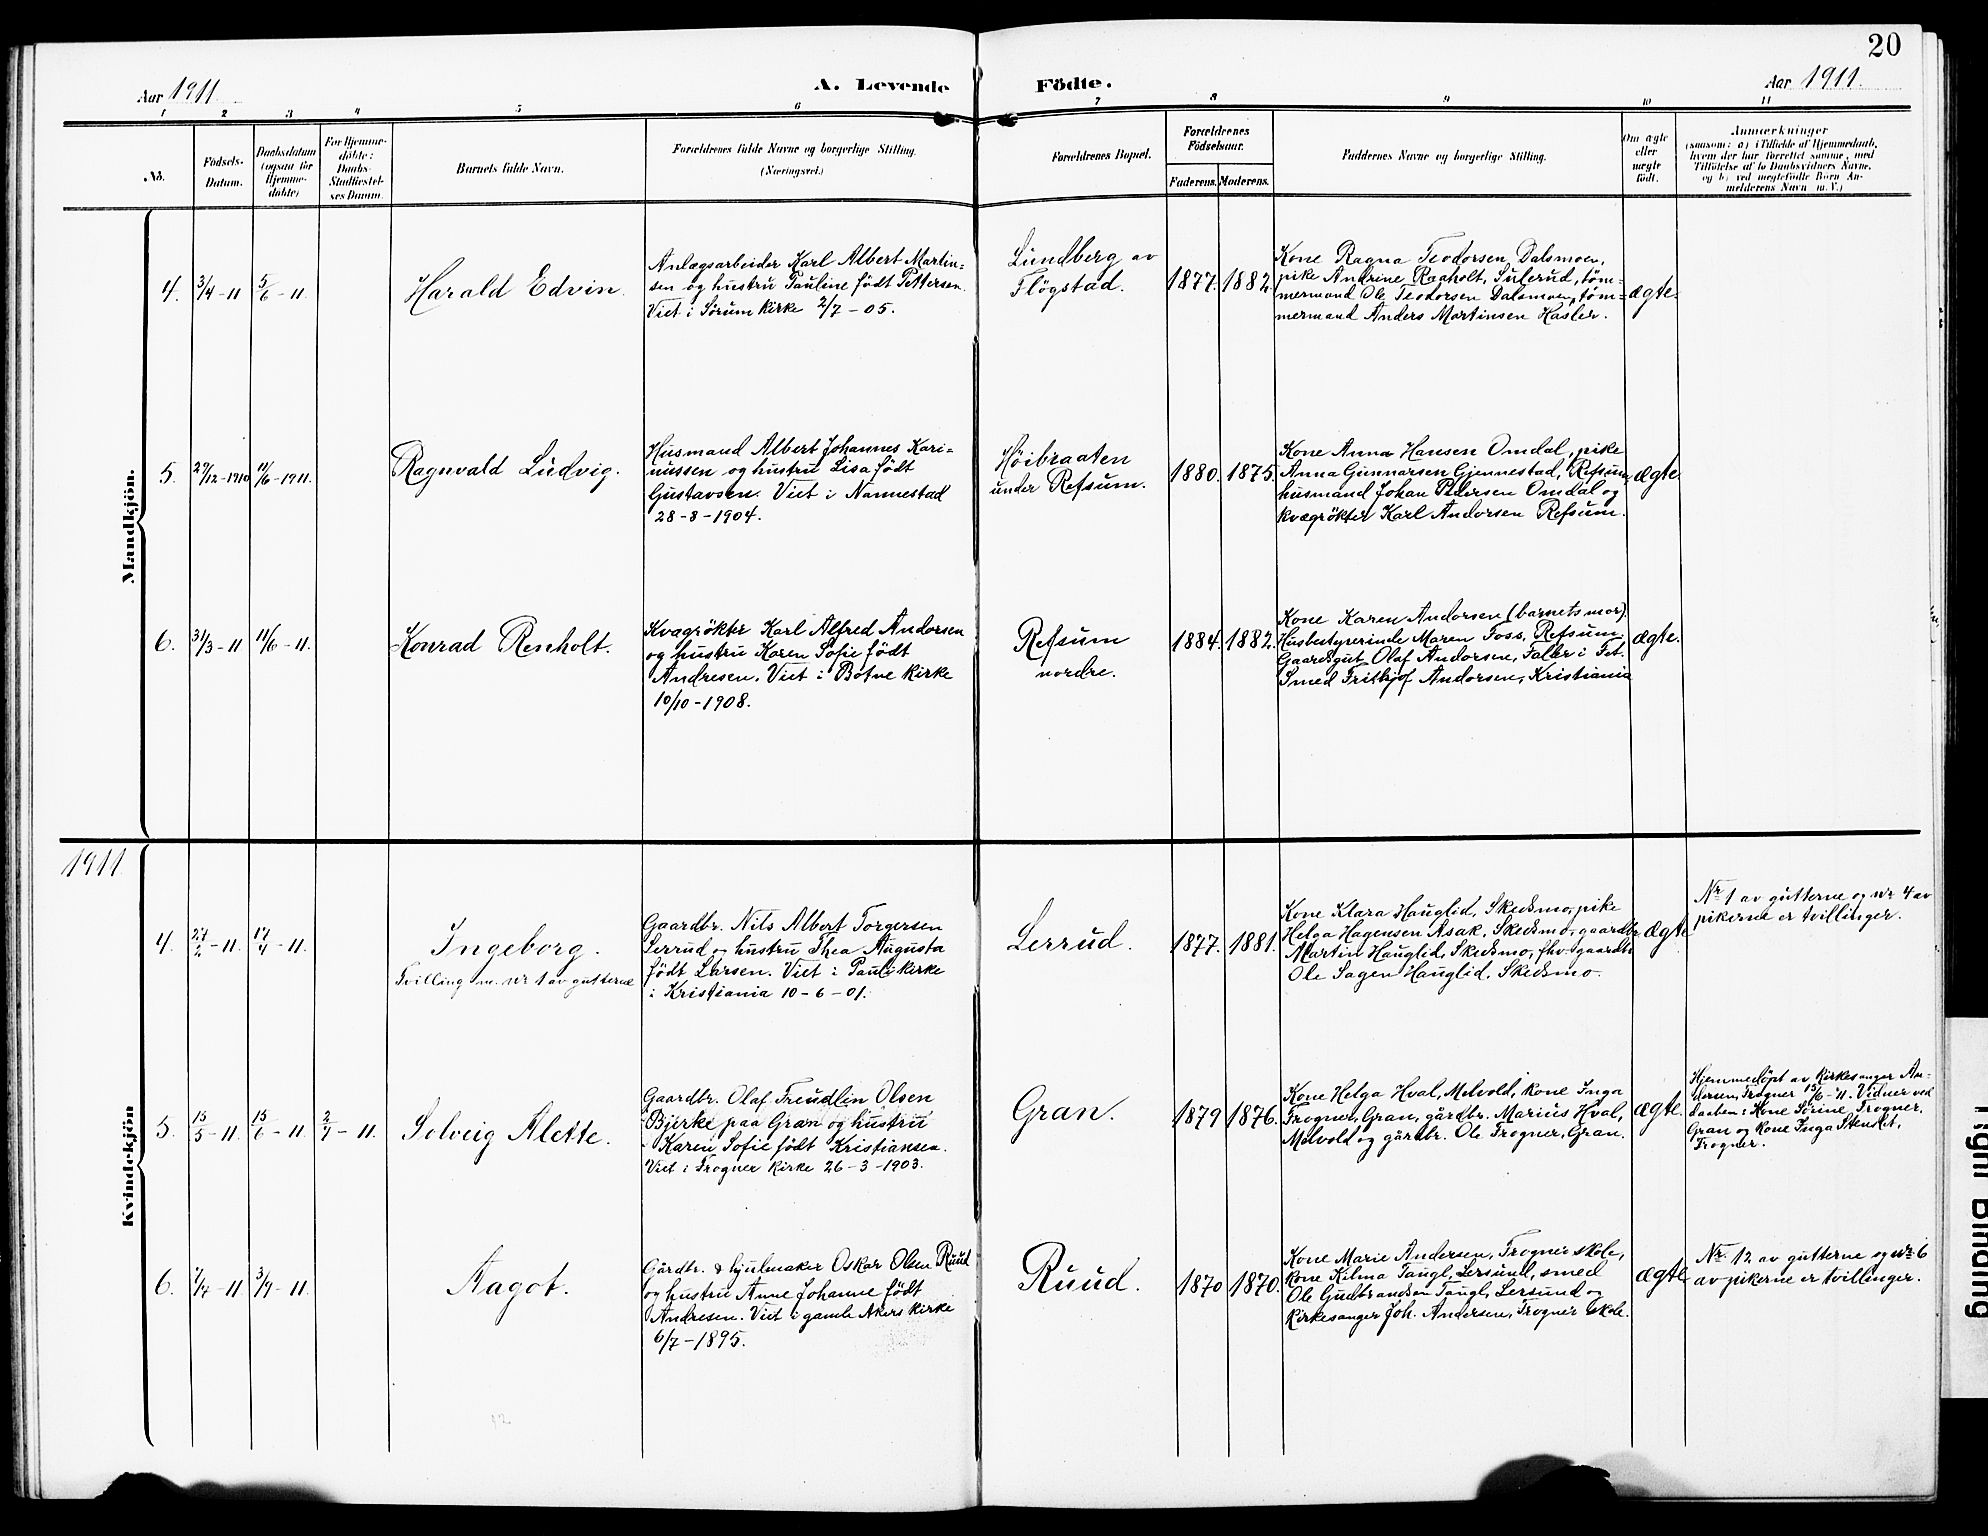 20
Aar 1911.
A. Levende
Födte.
Aar 1911.
1 2 3 4 5 6 7 8 9 10 11
No.
Födsels-
Datum.
Daabsdatum
(ogsaa for
Hjemme-
døbte)
For Hjemme-
døbte:
Daabs-
Stadfæstel-
ses Datum.
Barnets fulde Navn.
Forældrenes fulde Navne og borgerlige Stilling.
(Næringsvei.)
Forældrenes Bopæl.
Forældrenes
Födselsaar.
Faderens.
Moderens.
Faddernes Navne og borgerlige Stilling.
Om ægte
eller
uægte
født.
Anmærkninger
(saasom: a) i Tilfælde af Hjemmedaab,
hvem der har forrettet samme, med
Tilföielse af to Daabsvidners Navne,
og b) ved uægtefödte Börn An-
melderens Navn m. V.)
Mandkjön.
4.
3/4 - 11
5/6 - 11.
Harald Edvin.
Anlægsarbeider Karl Albert Martin=
sen og hustru Pauline født Pettersen.
Viet i Sörum kirke 2/7 - 05.
Lundberg av
Flögstad.
1877.
1882.
Kone Ragna Teodorsen Dalsmoen,
pike Andrine Raaholt, Sulerud, töm=
mermand Ole Teodorsen Dalsmoen, töm=
mermand Anders Martinsen Hasler.
ægte.
5.
29/12 - 1910
11/6 - 1911.
Ragnvald Ludvig.
Husmand Albert Johannes Kari=
nussen og hustru Lisa født
Gustavsen. Viet i Nannestad
28 - 8 - 1904.
Høibraaten
under Refsum.
1880.
1875.
Kone Anna Hansen Omdal, pike
Anna Gunnarsen Gjennestad, Refsum,
husmand Johan Pedersen Omdal og
kvægrökter Karl Andorsen Refsum.
ægte.
6.
31/3 - 11
11/6 - 11.
Konrad Renholt.
Kvagrökter Karl Alfred Andorsen
og hustru Karen Sofie født
Andresen. Viet i Botne kirke
10/10 - 1908.
Refsum
nordre.
1884.
1882.
Kone Karen Andorsen (barnets mor).
Husbestyrerinde Maren Foss, Refsum.
Gaardsgut Olaf Andorsen, Faller i Fet.
Smed Fritkjof Andorsen, Kristiania
ægte.
1911
Kvindekjön
4.
27/2 - 11.
17/4 - 11.
Ingeborg.
Tvilling m. nr 1 av gutterne
Gaardbr. Nils Albert Torgersen
Lerrud og hustru Thea Augusta
født Larsen. Viet i Pauls kirke
i Kristiania 10 - 6 - 01.
Lerrud.
1877.
1881.
Kone Klara Hauglid, Skedsmo, pike
Helga Hagensen Asak, Skedsmo, gaardbr.
Martin Hauglid, Skedsmo, fhv. gaardbr.
Ole Sagen Hauglid, Skedsmo.
ægte
Nr 1 av gutterne og nr 4 av
pikerne er tvillinger.
5.
15/5 - 11.
15/6 - 11
2/7 - 11.
Solveig Alette.
Gaardbr. Olaf Treudlin Olsen
Bjerke paa Gran og hustru
Karen Sofie født Kristiansen.
Viet i Frogner kirke 26 - 3 - 1903.
Gran.
1879
1876.
Kone Helga Hval, Melvold, kone Inga
Frogner, Gran, gårdbr. Marius Hval,
Melvold og gårdbr. Ole Frogner, Gran.
ægte.
Hjemmedöpt av kirkesanger An-
dersen, Frogner 15/6 - 11. Vidner ved
daaben: Kone Sörine Frogner,
Gran og kone Inga Stensket,
Frogner.
6.
7/4 - 11
3/9 - 11.
Aagot.
Gårdbr. & hjulmaker Oskar Olsen Ruud
og hustru Anne Johanne født
Andresen. Viet i gamle Akers kirke
6/7 - 1895.
Ruud.
1870
1870.
Kone Marie Andersen, Frogner skole,
kone Kilma Taugl, Lersund, smed
Ole Gudbrandsen Taugl, Lersund og
kirkesanger Joh. Andersen, Frogner skole.
ægte
Nr. 12 av gutterne og nr 6
av pikerne er tvillinger.
Tight Binding